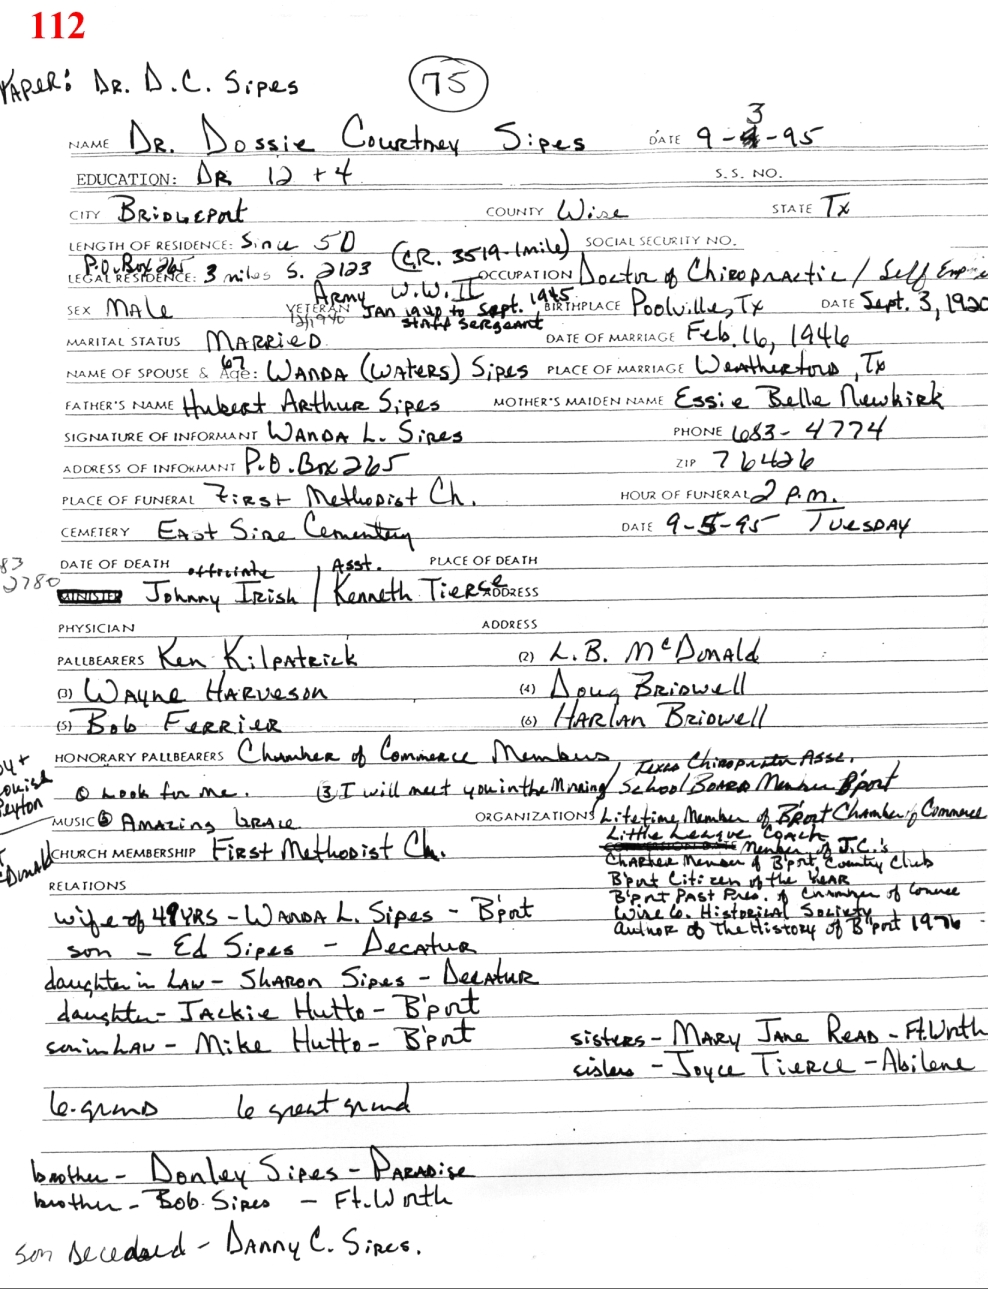 112
PAPER: DR. D.C. Sipes 75
NAME DR. Dossie Courtney Sipes DATE 9-3-95
EDUCATION: DR 12 + 4 S.S. NO.
CITY Bridgeport COUNTY Wise STATE Tx
LENGTH OF RESIDENCE: Since 50 (CR. 3519-1mile) SOCIAL SECURITY NO.
P.O. Box 265
LEGAL RESIDENCE: 3 miles S. 2123 OCCUPATION Doctor of Chiropractic / Self
Army W.W. II
SEX Male VETERAN 12/1940 JAN 1940 to Sept. 1945 BIRTHPLACE Poolville, Tx DATE Sept. 3, 1920
Staff Sergeant
MARITAL STATUS MARRIED DATE OF MARRIAGE Feb. 16, 1946
NAME OF SPOUSE & Age: 67 WANDA (WATERS) Sipes PLACE OF MARRIAGE Weatherford, Tx
FATHER'S NAME Hubert Arthur Sipes MOTHER'S MAIDEN NAME Essie Belle Newkirk
SIGNATURE OF INFORMANT WANDA L. Sipes PHONE 683-4774
ADDRESS OF INFORMANT P.O. Box 265 ZIP 76426
PLACE OF FUNERAL First Methodist Ch. HOUR OF FUNERAL 2 P.m.
CEMETERY East Side Cementery DATE 9-5-95 Tuesday
83 DATE OF DEATH officiate Asst. PLACE OF DEATH
2780 MINISTER Johnny Irish / Kenneth Tierce ADDRESS
PHYSICIAN ADDRESS
PALLBEARERS Ken Kilpatrick (2) L.B. McDonald
(3) Wayne Harveson (4) Doug Bridwell
(5) Bob Ferrier (6) Harlan Bridwell
HONORARY PALLBEARERS Chamber of Commerce Members, Texas Chiropractor Asse.
① Look for me. ③ I will meet you in the Morning School Board Member B'port
MUSIC ② Amazing Grace ORGANIZATIONS Lifetime Member of B'port Chamber of Commerce
Little League Coach
Member of J.C.'s
CHURCH MEMBERSHIP First Methodist Ch. Charter Member of B'port Country Club
RELATIONS B'port Citizen of the Year
B'port Past Pres. of Chamber of Comerce
wife of 49 YRS - WANDA L. Sipes - B'port Wise Co. Historical Society
Author of The History of B'port 1976
son - Ed Sipes - Decatur
daughter in LAW - Sharon Sipes - Decatur
daughter - Jackie Hutto - B'port
son in LAW - Mike Hutto - B'port sisters - Mary Jane Read - Ft. Worth
sisters - Joyce Tierce - Abilene
6-grand 6 great grand
brother - Donley Sipes - Paradise
brother - Bob Sipes - Ft. Worth
son deceased - Danny C. Sipes.